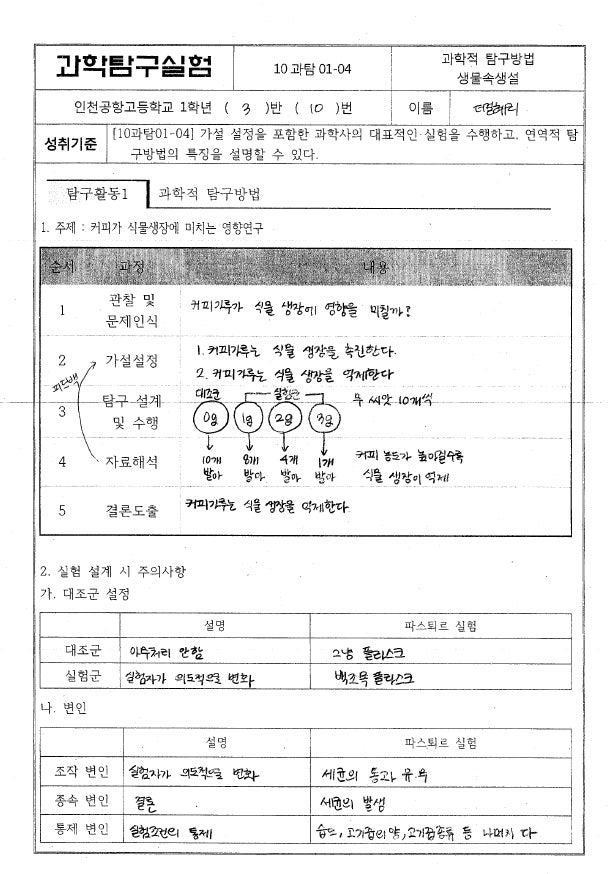 과학탐구실험
10 과탐 01-04
과학적 탐구방법
생물속생설
인천공항고등학교 1학년 ( 3 )반 ( 10 )번
이름
성취기준
[10과탐01-04] 가설 설정을 포함한 과학사의 대표적인 실험을 수행하고, 연역적 탐
구방법의 특징을 설명할 수 있다.
탐구활동1 과학적 탐구방법
1. 주제 : 커피가 식물생장에 미치는 영향연구
순서 과정 내용
1 관찰 및 문제인식 커피가루가 식물 생장에 영향을 미칠까?
2 가설설정 1. 커피가루는 식물 생장을 촉진한다.
2. 커피가루는 식물 생장을 억제한다
피드백
3 탐구 설계 및 수행
대조군 실험군 무 씨앗 10개씩
0g 1g 2g 3g
4 자료해석
10개 8개 4개 1개
발아 발아 발아 발아
커피 농도가 높아질수록
식물 생장이 억제
5 결론도출 커피가루는 식물 생장을 억제한다
2. 실험 설계 시 주의사항
가. 대조군 설정
설명 파스퇴르 실험
대조군 아무처리 안함 그냥 플라스크
실험군 실험자가 의도적으로 변화 백조목 플라스크
나. 변인
설명 파스퇴르 실험
조작 변인 실험자가 의도적으로 변화 세균의 통과 유무
종속 변인 결론 세균의 발생
통제 변인 실험조건의 통제 습도, 고기즙의 양, 고기즙종류 등 나머지 다